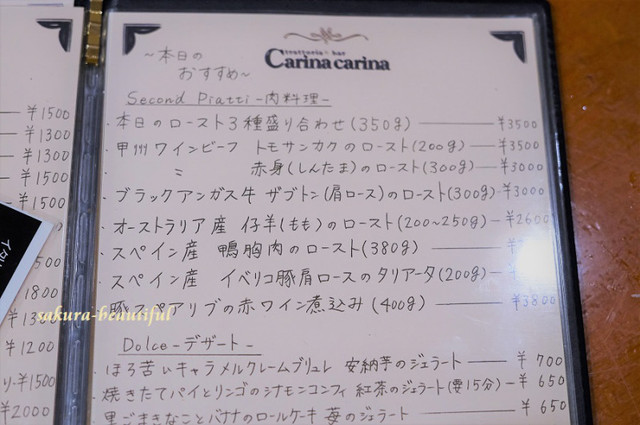 trattoria・bar
Carina carina
~本日の
おすすめ~
Second Piatti -肉料理-
本日のロースト3種盛り合わせ(350g) ¥3500
甲州ワインビーフ トモサンカクのロースト(200g) ¥3500
〃 赤身(しんたま)のロースト(300g) ¥3000
ブラックアンガス牛 ザブトン(肩ロース)のロースト(300g) ¥3000
オーストラリア産 仔羊(もも)のロースト(200~250g) ¥2600
スペイン産 鴨胸肉のロースト(380g)
スペイン産 イベリコ豚肩ロースのタリアータ(200g)
豚スペアリブの赤ワイン煮込み(400g) ¥3800
Dolce -デザート-
ほろ苦いキャラメルクレームブリュレ 安納芋のジェラート ¥700
焼きたてパイとリンゴのシナモンコンフィ 紅茶のジェラート(要15分) ¥650
黒ごまきなことバナナのロールケーキ 苺のジェラート ¥650
¥1500
¥1300
¥1300
¥1500
¥1500
1800
¥1300
¥1200
¥1500
¥2000
sakura-beautiful